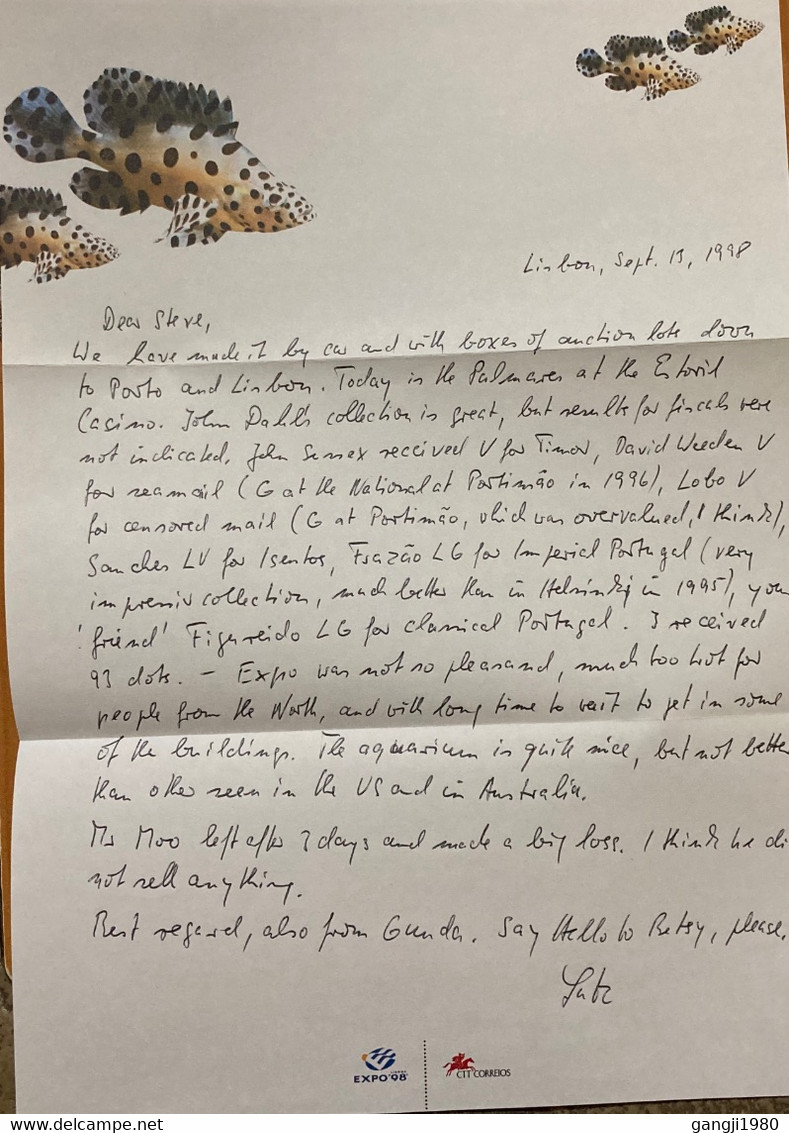 Lisbon, Sept. 13, 1998
Dear Steve,
We have made it by car and with boxes of auction lots down
to Porto and Lisbon. Today is the Palmares at the Estoril
Casino. John Dahl's collection is great, but results for fiscals were
not indicated. John Sussex received V for Timor, David Weeden V
for seamail (G at the National at Portimão in 1996), Lobo V
for censored mail (G at Portimão, which was overvalued, I think),
Sanches LV for Isentos, Frazão LG for Imperial Portugal (very
impressiv collection, much better than in Helsinki in 1995), your
'friend' Figureido LG for classical Portugal. I received
93 dots. - Expo was not so pleasand, much too hot for
people from the North, and with long time to wait to get in some
of the buildings. The aquarium is quite nice, but not better
than other seen in the US and in Australia.
Mr Moo left after 3 days and made a big loss. I think he di
not sell anything.
Best regard, also from Gunda. Say Hello to Betsy, please.
EXPO'98
CTT CORREIOS
www.delcampe.net
gangji1980